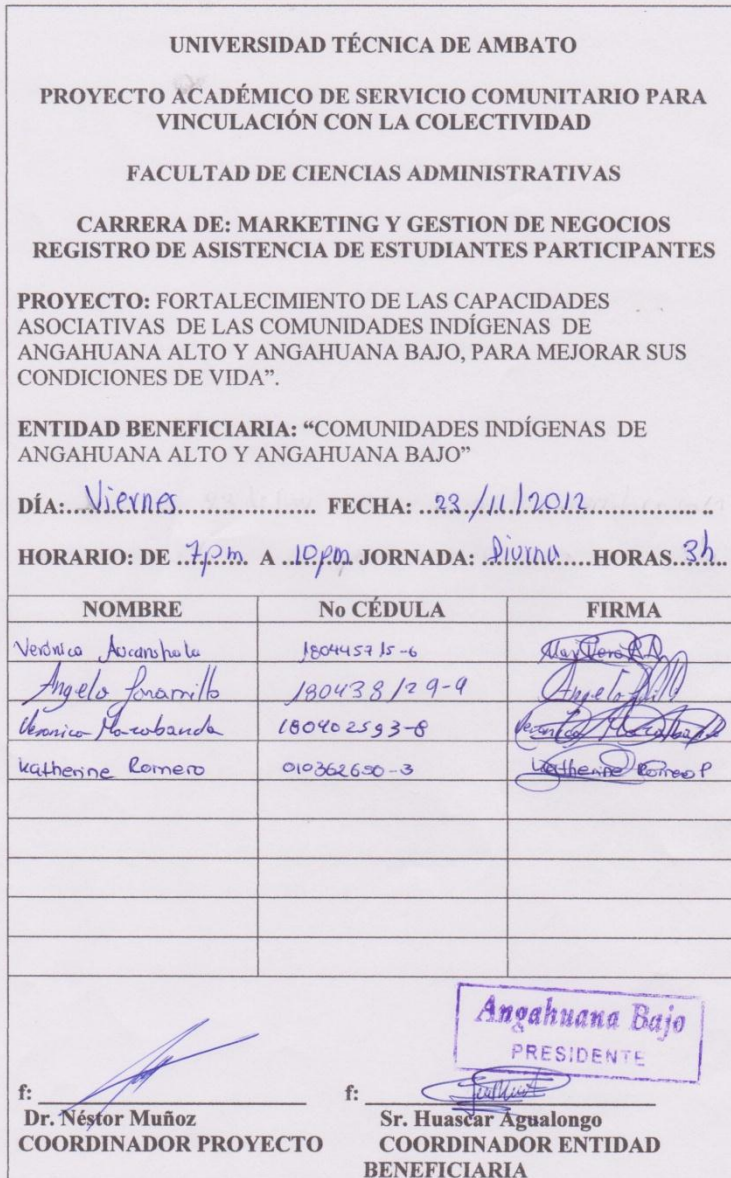 UNIVERSIDAD TÉCNICA DE AMBATO
PROYECTO ACADÉMICO DE SERVICIO COMUNITARIO PARA
VINCULACIÓN CON LA COLECTIVIDAD
FACULTAD DE CIENCIAS ADMINISTRATIVAS
CARRERA DE: MARKETING Y GESTION DE NEGOCIOS
REGISTRO DE ASISTENCIA DE ESTUDIANTES PARTICIPANTES
PROYECTO: FORTALECIMIENTO DE LAS CAPACIDADES
ASOCIATIVAS DE LAS COMUNIDADES INDÍGENAS DE
ANGAHUANA ALTO Y ANGAHUANA BAJO, PARA MEJORAR SUS
CONDICIONES DE VIDA”.
ENTIDAD BENEFICIARIA: “COMUNIDADES INDÍGENAS DE
ANGAHUANA ALTO Y ANGAHUANA BAJO”
DÍA: Viernes FECHA: 23/11/2012
HORARIO: DE 7pm A 10pm JORNADA: Diurna HORAS 3h
NOMBRE No CÉDULA FIRMA
Verónica 180445715-6
Angelo Jaramillo 180438129-9 Angelo
Veronica Masabanda 180402593-8 Veronica
Katherine Romero 010362650-3 Katherine Romero P
Angahuana Bajo
PRESIDENTE
f: f:
Dr. Néstor Muñoz Sr. Huascar Agualongo
COORDINADOR PROYECTO COORDINADOR ENTIDAD
BENEFICIARIA